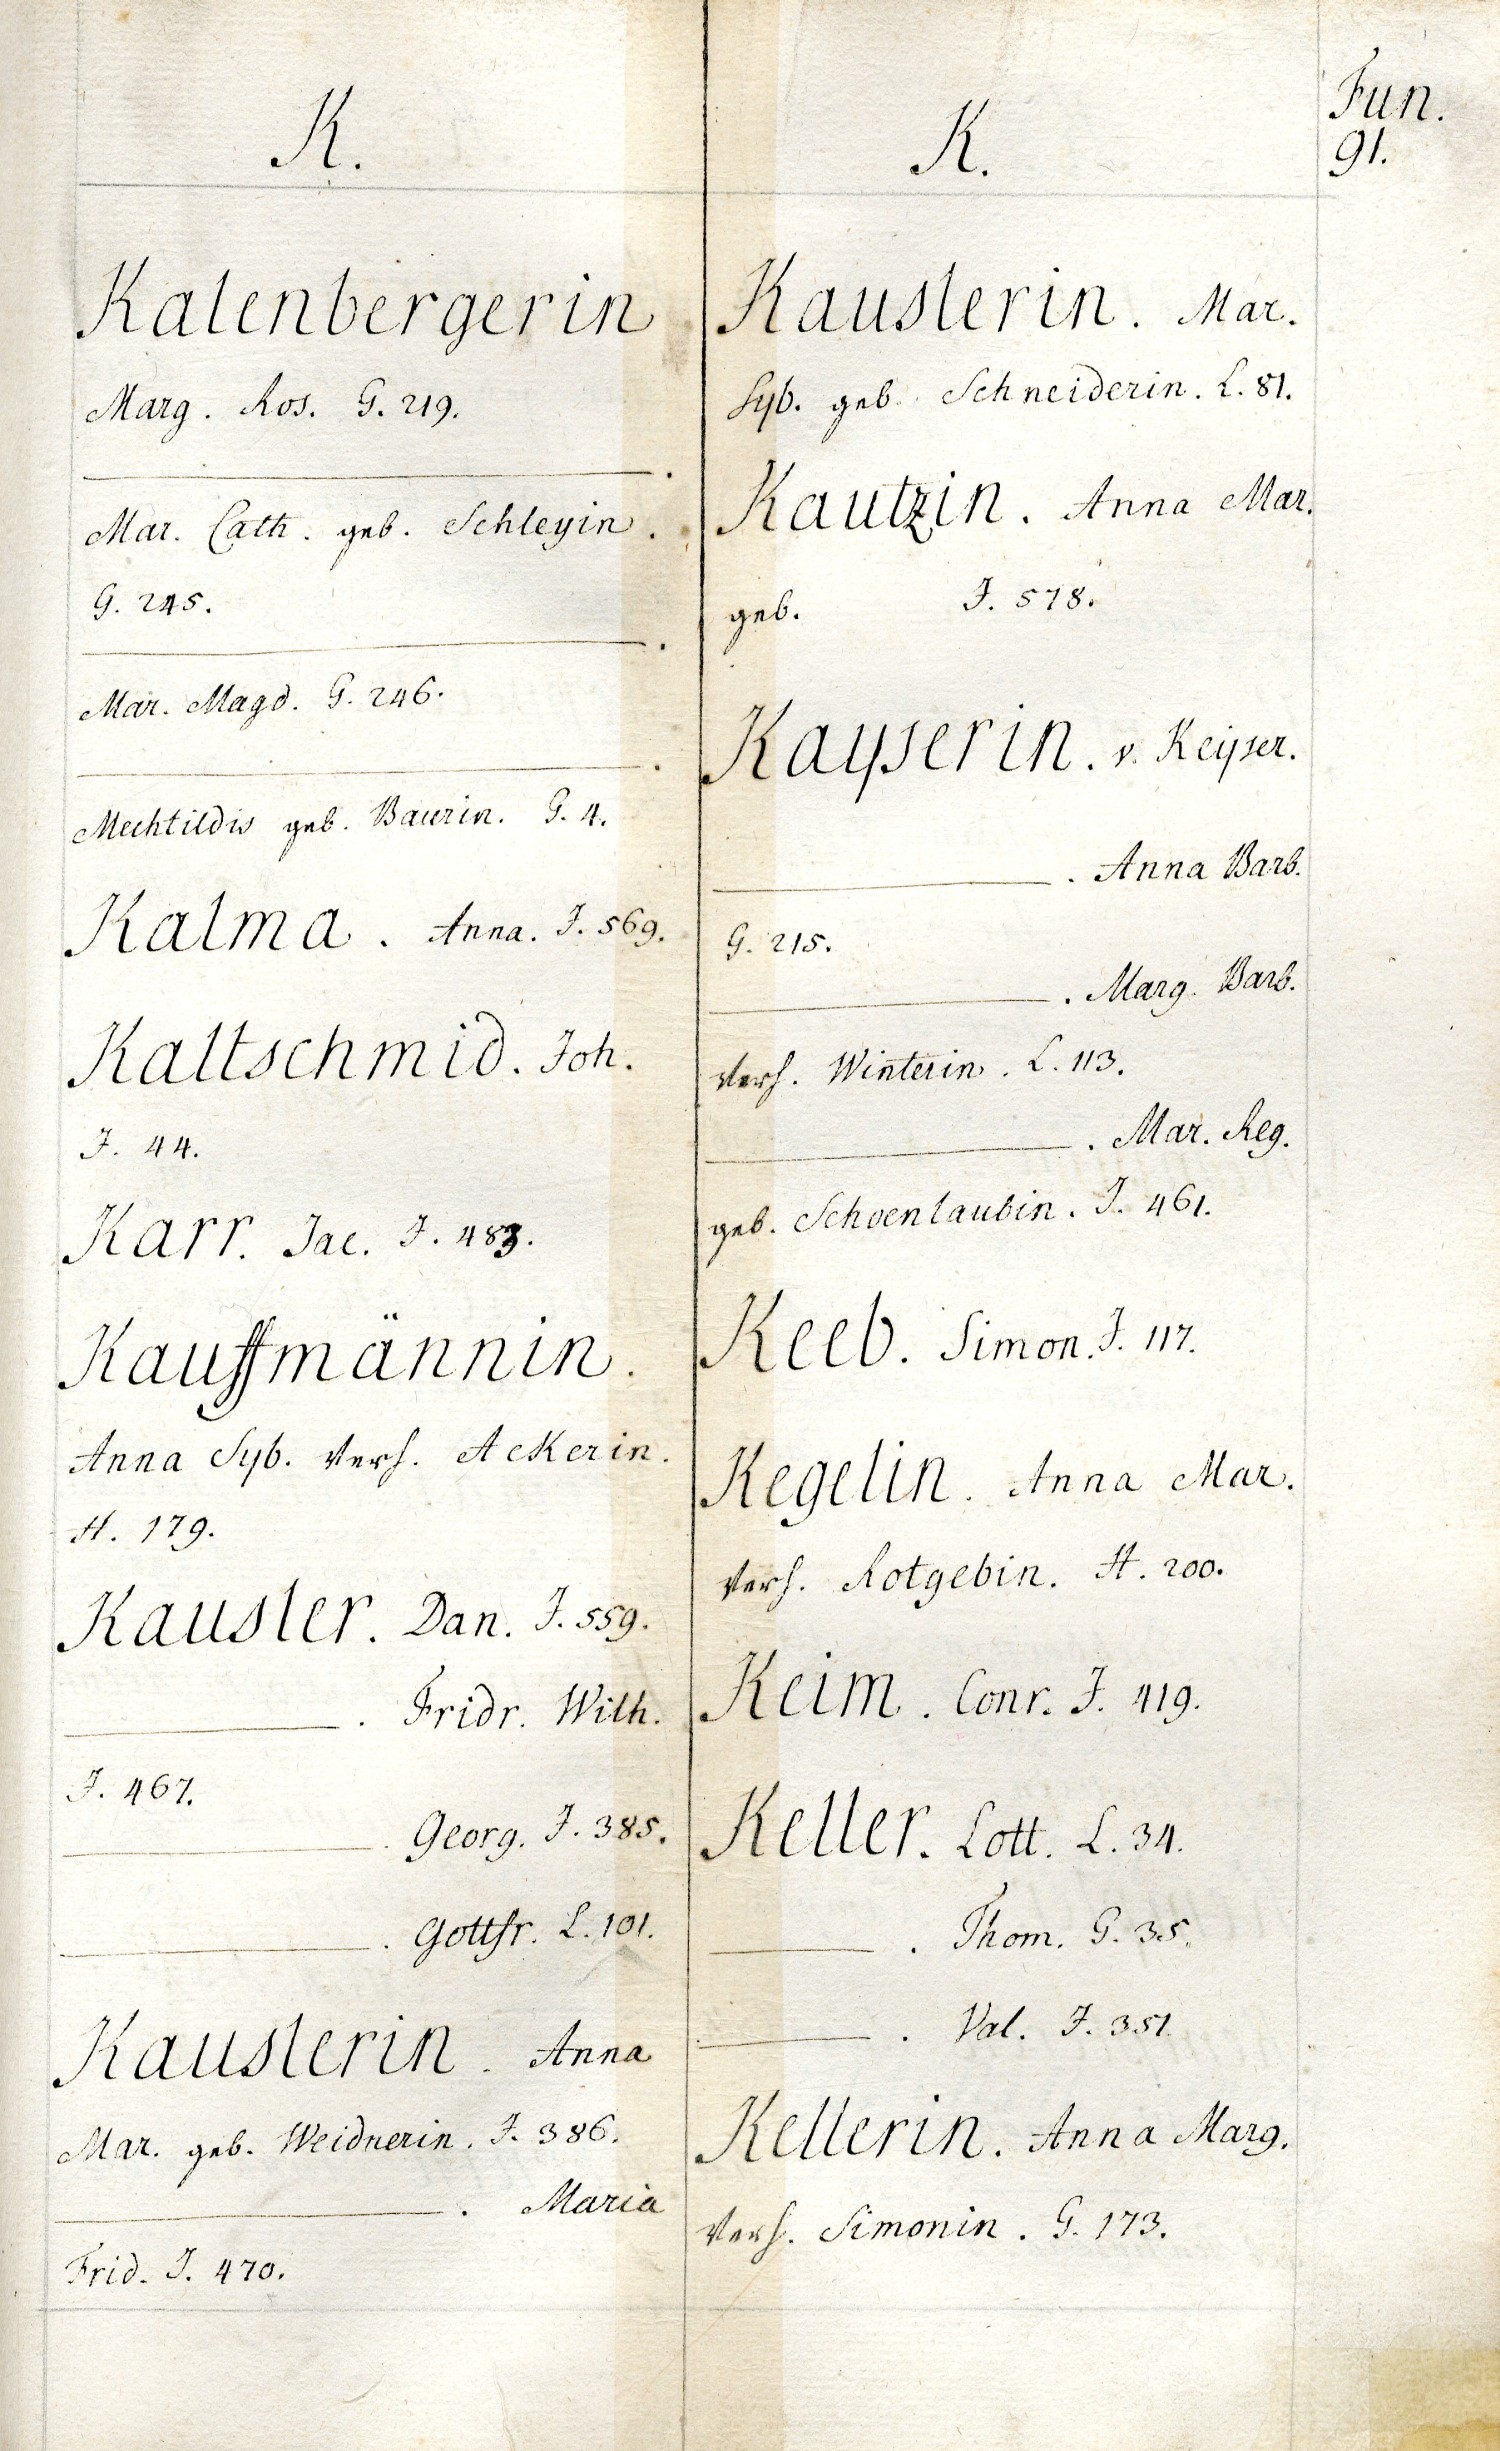 K.
Kalenbergerin
Marg. Ros. G. 219.
Mar. Cath. geb. Schleyin.
G. 245.
Mar. Magd. G. 246.
Mechtildis geb. Baurin. G. 4.
Kalma. Anna. J. 569.
Kaltschmid. Joh.
J. 44.
Karr. Jac. J. 483.
Kauffmännin.
Anna Syb. verh. Ackerin.
H. 179.
Kausler. Dan. J. 559.
. Fridr. Wilh.
J. 467.
. Georg. J. 385.
. Gottfr. L. 101.
Kauslerin. Anna
Mar. geb. Weidnerin. J. 386.
. Maria
Frid. J. 470.
K.
Kauslerin. Mar.
Syb. geb. Schneiderin. L. 81.
Kautzin. Anna Mar.
geb. J. 578.
Kayserin. v. Keyser.
. Anna Barb.
G. 215.
. Marg. Barb.
verh. Winterin. L. 113.
. Mar. Reg.
geb. Schoenlaubin. J. 461.
Keeb. Simon. J. 117.
Kegelin. Anna Mar.
verh. Rotgebin. H. 200.
Keim. Conr. J. 419.
Keller. Lott. L. 34.
. Thom. G. 35.
. Val. J. 351.
Kellerin. Anna Marg.
verh. Simonin. G. 173.
Fun.
91.